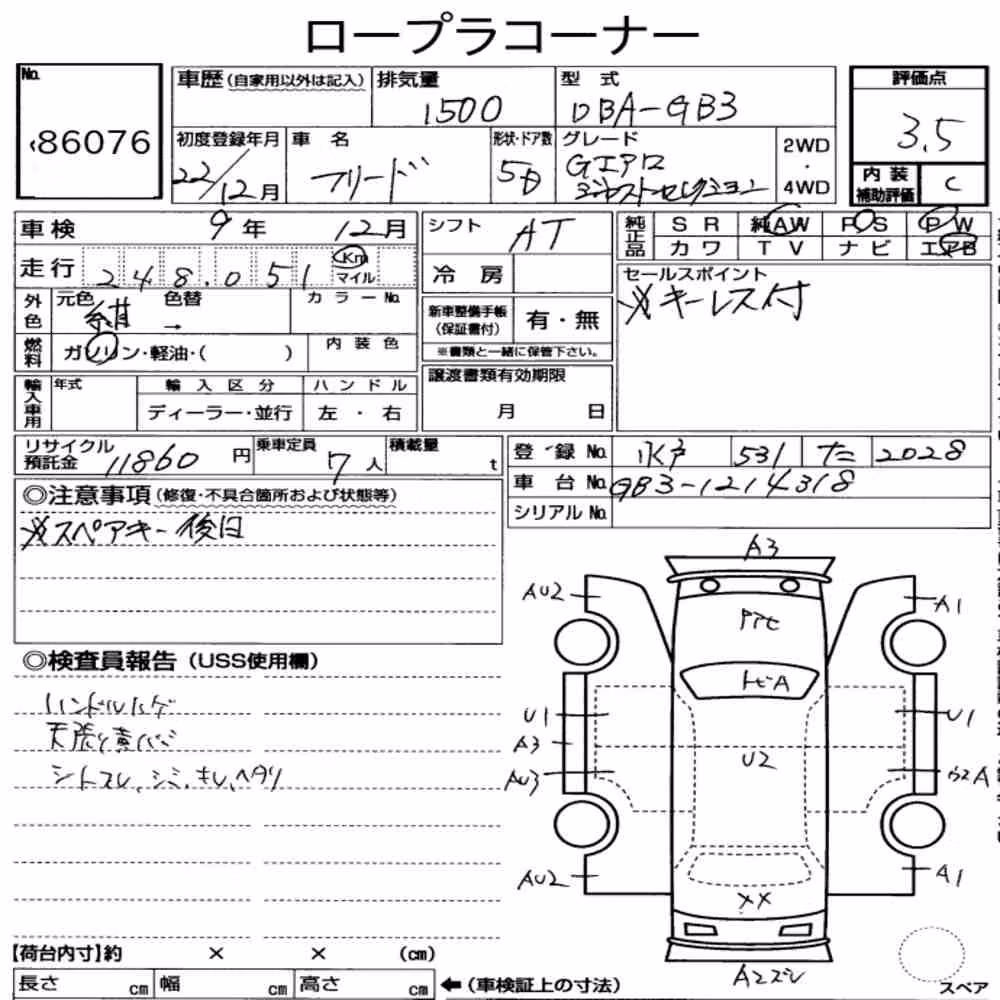 ロープラコーナー
No.
86076
車歴(自家用以外は記入) 排気量 型 式 評価点
1500 DBA-GB3 3.5
初度登録年月 車 名 形状・ドア数 グレード 2WD・4WD
22/12月 フリード 5D Gエアロ ジャストセレクション
内装補助評価 C
車検 9年 12月 シフト AT 純正品 SR 純AW PS PW
カワ TV ナビ エアB
走行 248,051 Km マイル 冷房
セールスポイント
※キーレス付
外色 元色 紺 色替 → カラーNo.
新車整備手帳(保証書付) 有・無
※書類と一緒に保管下さい。
燃料 ガソリン・軽油・( ) 内装色
輸入車用 年式 輸入区分 ハンドル 譲渡書類有効期限
ディーラー・並行 左・右 月 日
リサイクル預託金 11860 円 乗車定員 7人 積載量 t
登録No. 水戸 531 た 2028
車台No. GB3-1214318
シリアルNo.
◎注意事項(修復・不具合箇所および状態等)
※スペアキー後日
◎検査員報告(USS使用欄)
ハンドルハゲ
天張り黄バミ
シートスレ、シミ、キレ、ヘタリ
A3
AU2 A1
トビA
U1 U1
A3
U2
AU3
AU2 A1
XX
Aスズレ
スペア
【荷台内寸】約 × × (cm)
長さ cm 幅 cm 高さ cm ←(車検証上の寸法)